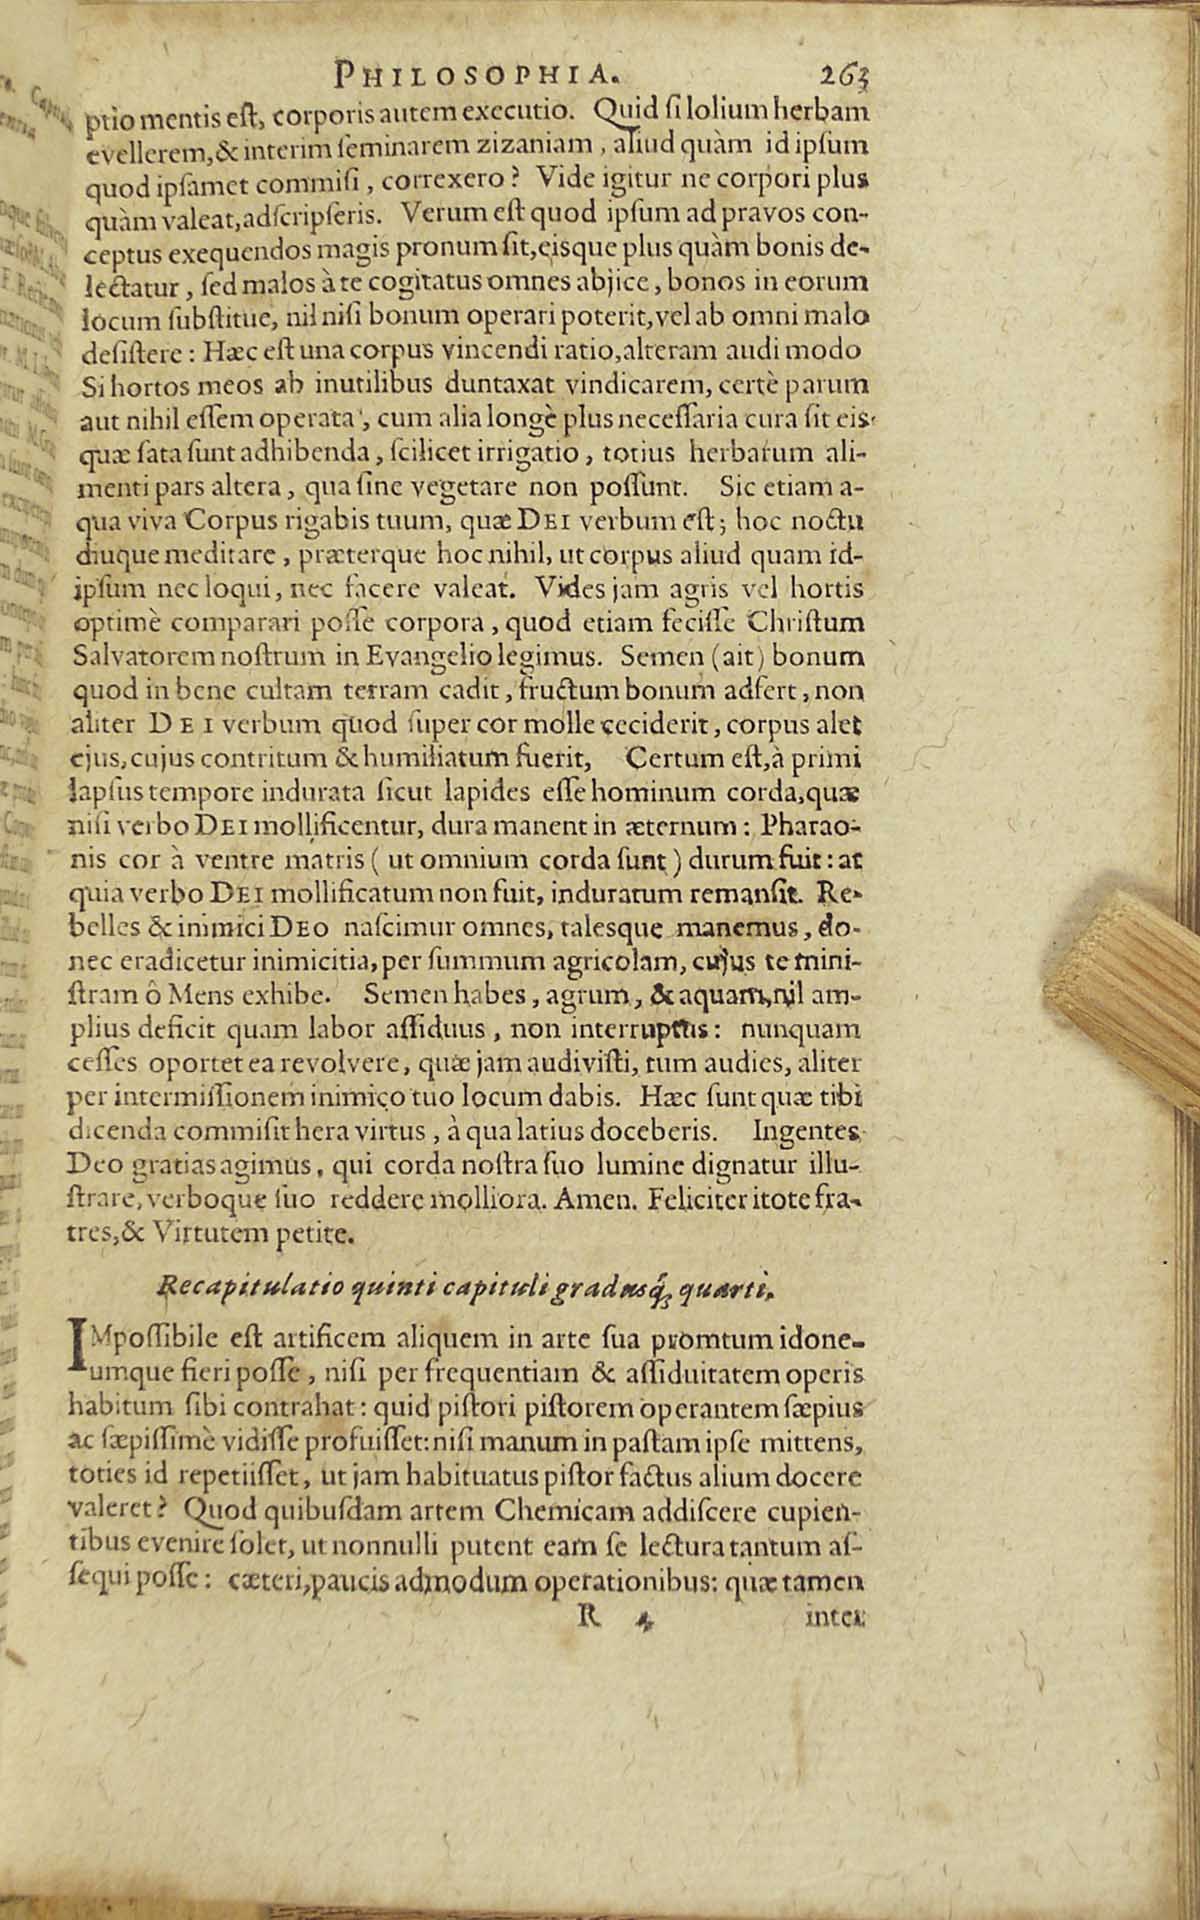 PHILOSOPHIA. 263
ptio mentis est, corporis autem executio. Quid si lolium herbam
evellerem, & interim seminarem zizaniam, aliud quàm id ipsum
quod ipsamet commisi, correxero? Vide igitur ne corpori plus
quàm valeat, adscripseris. Verum est quod ipsum ad pravos con-
ceptus exequendos magis pronum sit, eisque plus quàm bonis de-
lectatur, sed malos à te cogitatus omnes abjice, bonos in eorum
locum substitue, nil nisi bonum operari poterit, vel ab omni malo
desistere: Hæc est una corpus vincendi ratio, alteram audi modo
Si hortos meos ab inutilibus duntaxat vindicarem, certè parum
aut nihil essem operata, cum alia longè plus necessaria cura sit eis
quæ sata sunt adhibenda, scilicet irrigatio, totius herbarum ali-
menti pars altera, qua sine vegetare non possunt. Sic etiam a-
qua viva Corpus rigabis tuum, quæ DEI verbum est; hoc noctu
diuque meditare, præterque hoc nihil, ut corpus aliud quam id-
ipsum nec loqui, nec facere valeat. Vides jam agris vel hortis
optimè comparari posse corpora, quod etiam fecisse Christum
Salvatorem nostrum in Evangelio legimus. Semen (ait) bonum
quod in bene cultam terram cadit, fructum bonum adfert, non
aliter DEI verbum quod super cor molle ceciderit, corpus alet
ejus, cujus contritum & humiliatum fuerit, Certum est, à primi
lapsus tempore indurata sicut lapides esse hominum corda, quæ
nisi verbo DEI mollificentur, dura manent in æternum: Pharao-
nis cor à ventre matris (ut omnium corda sunt) durum fuit: at
quia verbo DEI mollificatum non fuit, induratum remansit. Re-
belles & inimici DEO nascimur omnes, talesque manemus, do-
nec eradicetur inimicitia, per summum agricolam, cujus te mini-
stram ô Mens exhibe. Semen habes, agrum, & aquam, nil am-
plius deficit quam labor assiduus, non interruptus: nunquam
cesses oportet ea revolvere, quæ jam audivisti, tum audies, aliter
per intermissionem inimico tuo locum dabis. Hæc sunt quæ tibi
dicenda commisit hera virtus, à qua latius doceberis. Ingentes
Deo gratias agimus, qui corda nostra suo lumine dignatur illu-
strare, verboque suo reddere molliora. Amen. Feliciter itote fra-
tres, & Virtutem petite.
Recapitulatio quinti capituli gradusq́; quarti.
IMpossibile est artificem aliquem in arte sua promtum idone-
umque fieri posse, nisi per frequentiam & assiduitatem operis
habitum sibi contrahat: quid pistori pistorem operantem sæpius
ac sæpissimè vidisse profuisset: nisi manum in pastam ipse mittens,
toties id repetiisset, ut jam habituatus pistor factus alium docere
valeret? Quod quibusdam artem Chemicam addiscere cupien-
tibus evenire solet, ut nonnulli putent eam se lectura tantum as-
sequi posse: cæteri, paucis admodum operationibus: quæ tamen
R 4 inter